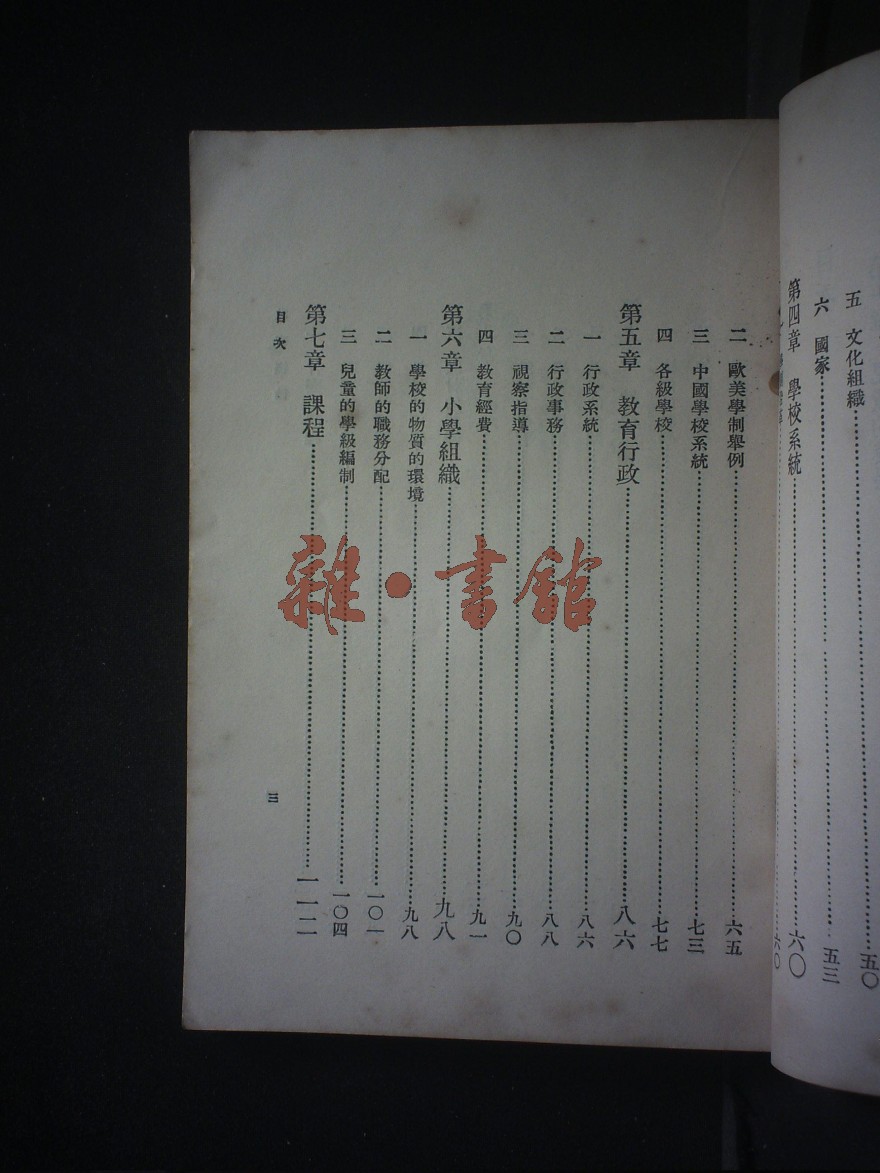 五　文化組織……五〇
六　國家……五三
第四章　學校系統……六〇
六〇
二　歐美學制舉例……六五
三　中國學校系統……七三
四　各級學校……七七
第五章　教育行政……八六
一　行政系統……八六
二　行政事務……八八
三　視察指導……九〇
四　教育經費……九一
第六章　小學組織……九八
一　學校的物質的環境……九八
二　教師的職務分配……一〇一
三　兒童的學級編制……一〇四
第七章　課程……一一二
目次
三
雜·書館